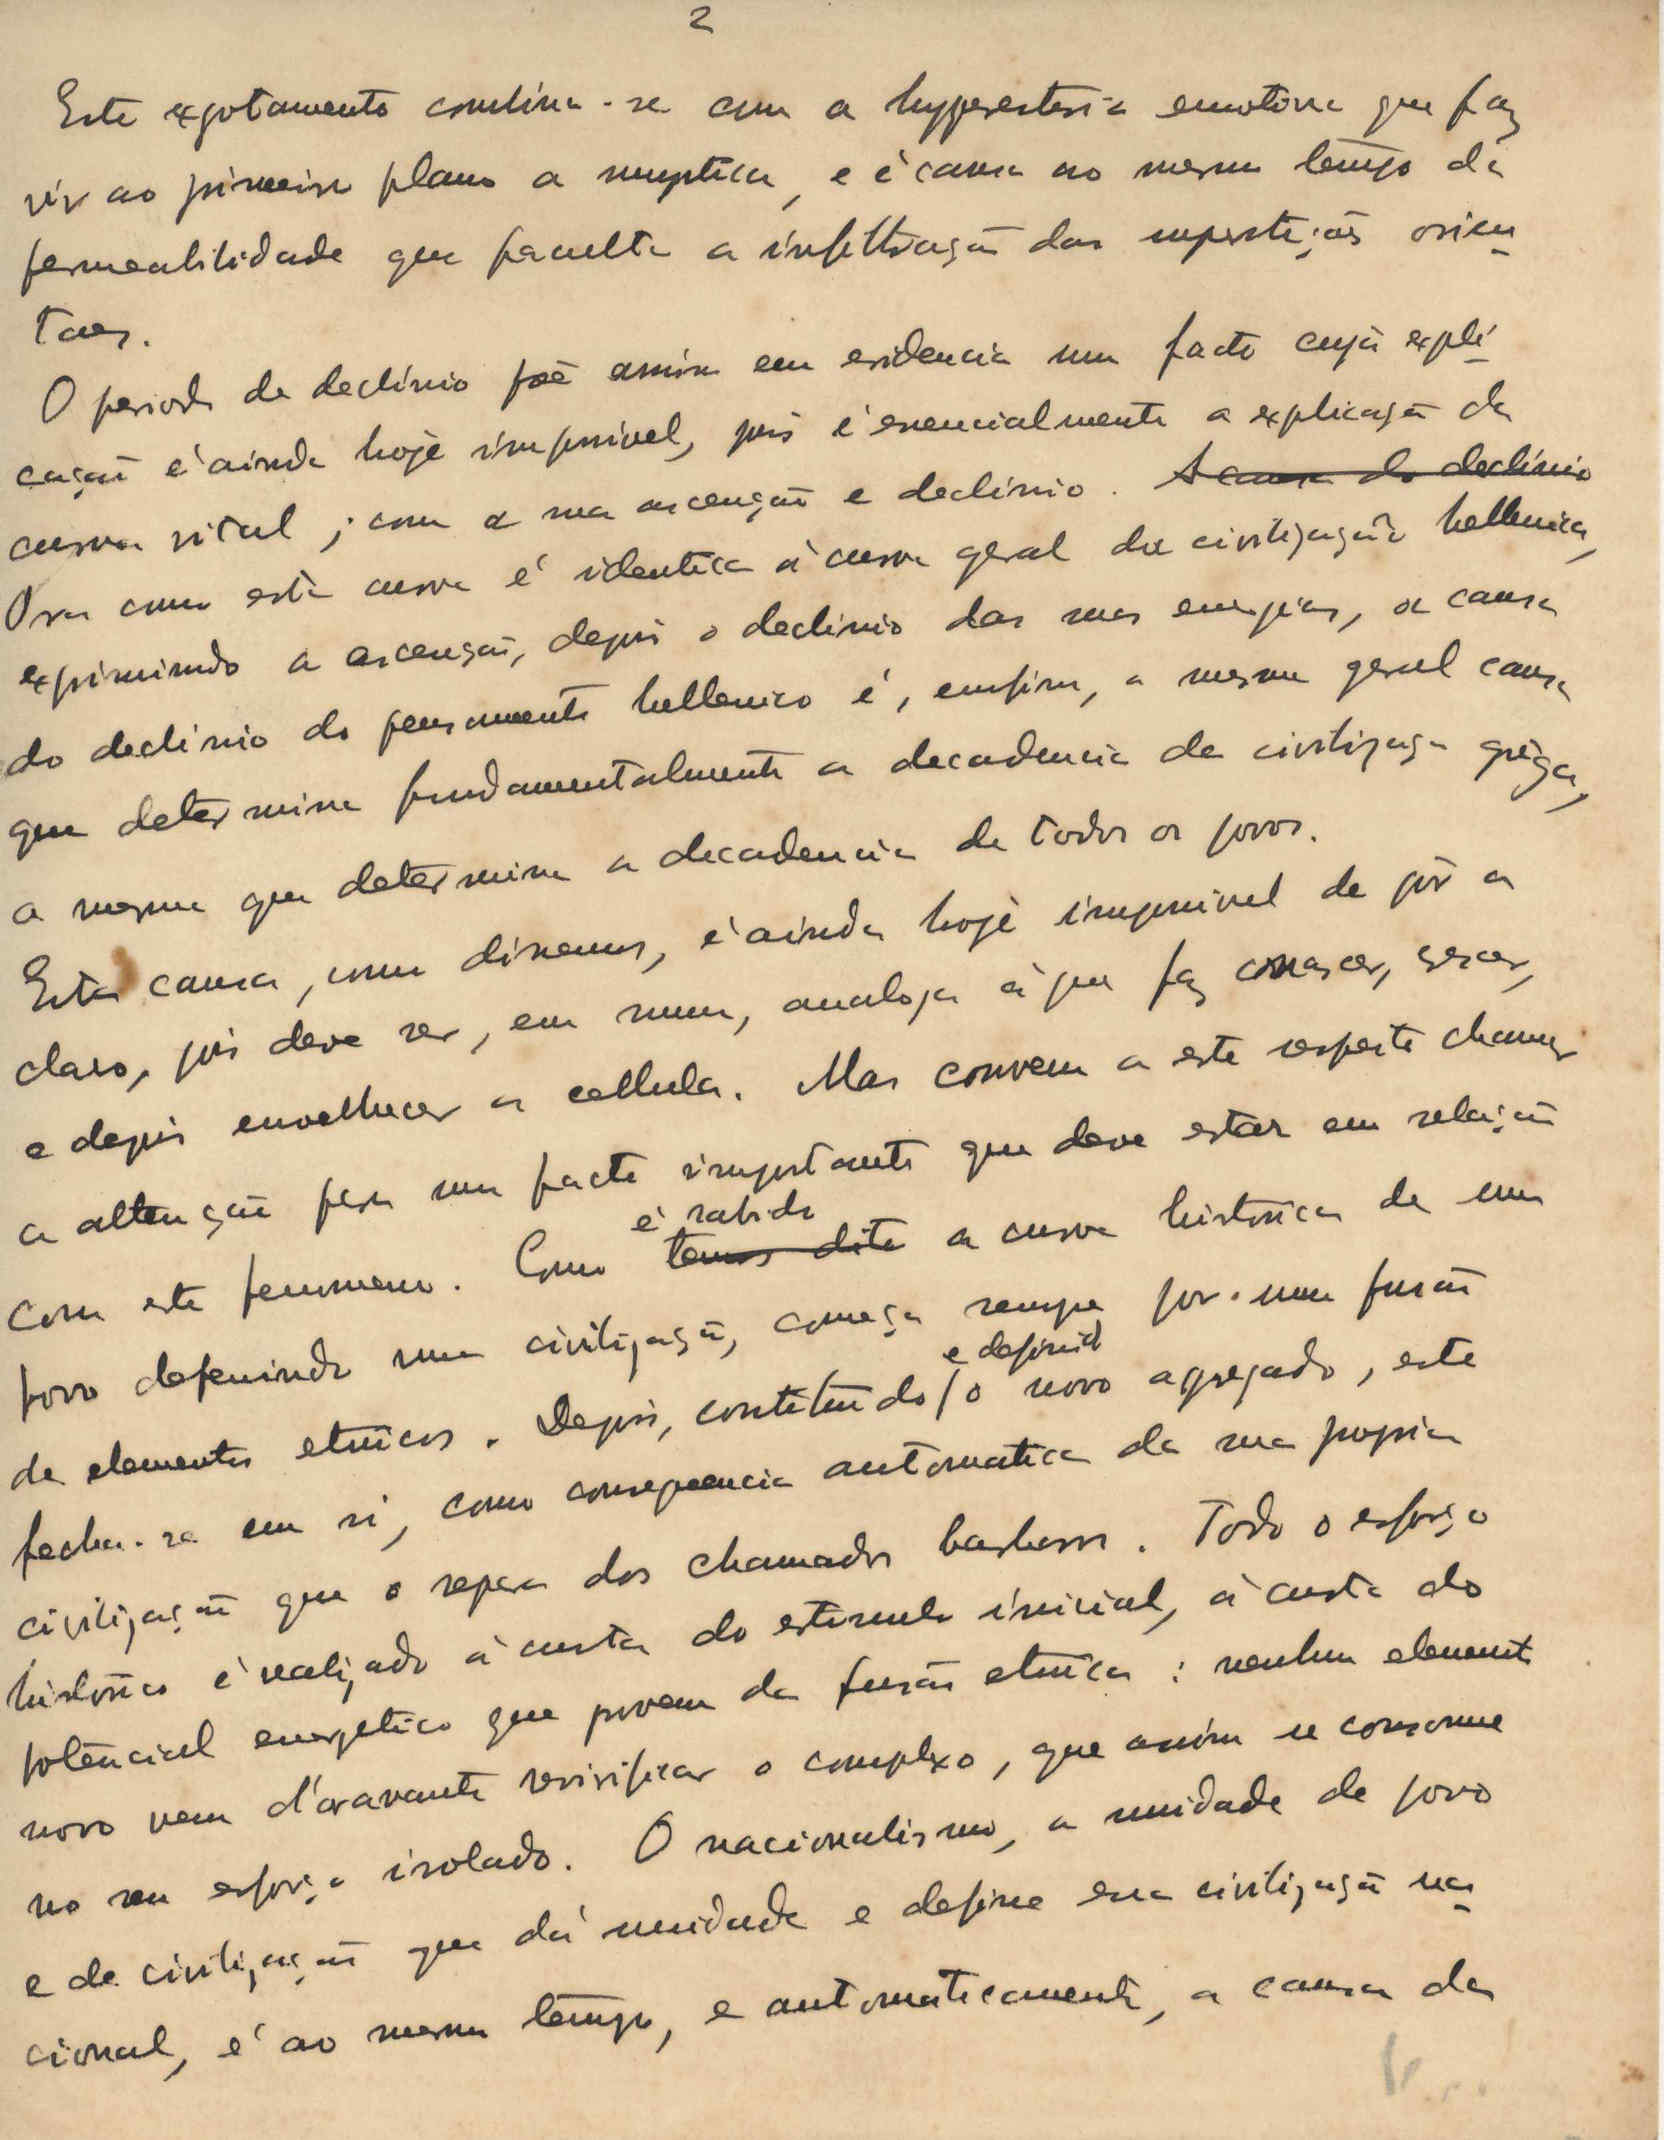 2
Este exgotamento combina-se com a hyperestesia emotiva que faz
vir ao primeiro plano a mystica, e é causa ao mesmo tempo da
permeabilidade que faculta a infiltração das superstições orien-
taes.
O periodo de declinio põe assim em evidencia um facto cuja expli-
cação é ainda hoje impossivel, pois é essencialmente a explicação da
curva vital, com a sua ascenção e declinio. A causa do declinio
Ora como esta curva é identica á curva geral da civilização hellenica,
exprimindo a ascenção, depois o declinio das suas energias, a causa
do declinio do pensamento hellenico é, emfim, a mesma geral causa
que determina fundamentalmente a decadencia da civilização grega,
a mesma que determina a decadencia de todos os povos.
Esta causa, como dissemos, é ainda hoje impossivel de pôr a
claro, pois deve ser, em suma, analoga á que faz começar, crescer,
e depois envelhecer a cellula. Mas convem a este respeito chamar
a attenção para um facto importante que deve estar em relação
é sabido
com este fenomeno. Como temos dito a curva historica de um
povo definindo uma civilização, começa sempre por uma fusão
e definido
de elementos etnicos. Depois, constituido / o novo agregado, este
fecha-se em si, como consequencia automatica da sua propria
civilização que o separa dos chamados barbaros. Todo o esforço
historico é realizado á custa do estimulo inicial, á custa do
potencial energetico que provem da fusão etnica: nenhum elemento
novo vem d'oravante revivificar o complexo, que assim se consome
no seu esforço isolado. O nacionalismo, a unidade de povo
e de civilização que dá unidade e define essa civilização na-
cional, é ao mesmo tempo, e automaticamente, a causa da